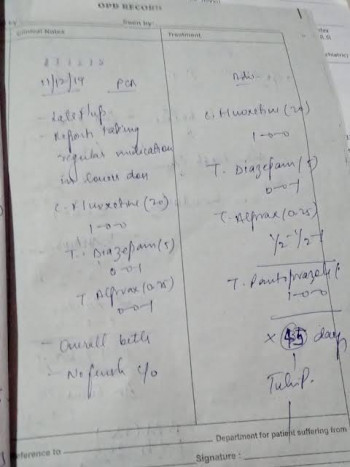 OPD RECORD
Seen by
Clinical Notes
Treatment
11/12/19
PCR
Adv-
- Late f/up
- Reports taking
regular medication
in lower dose
C. Fluoxetine (20)
1-0-0
- T. Diazepam (5)
0-0-1
T. Alprax (0.25)
0-0-1
- Overall better
- No fresh c/o
C. Fluoxetine (20)
1-0-0
T. Diazepam (5)
0-0-1
T. Alprax (0.25)
1/2-1/2-1
T. Pantoprazole (
1-0-0
x 45 days
Department for patient suffering from
Reference to
Signature :